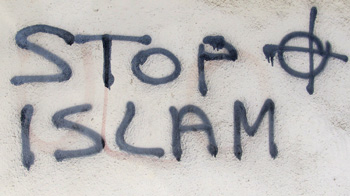 STOP
ISLAM